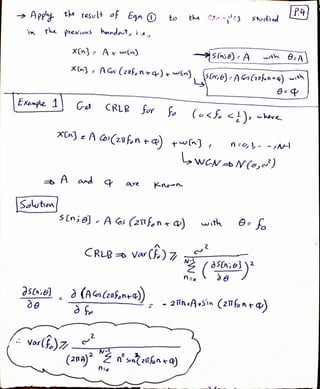 P.4
→ Apply the result of Eqn ① to the examples studied
in the previous handout, i.e.,
x[n] = A + w[n] → s[n;θ] = A with θ=A
x[n] = A Cos(2πf₀n+φ) + w[n] → s[n;θ] = A Cos(2πf₀n+φ) with
θ = φ
Example 1 Get CRLB for f₀ (0<f₀<1/2), where
x[n] = A Cos(2πf₀n + φ) + w[n], n=0,1,---,N-1
↳ WGN ⇒ N(0,σ²)
⇒ A and φ are known
Solution
s[n;θ] = A Cos(2πf₀n+φ) with θ=f₀
CRLB ⇒ var(f̂₀) ≥ σ² / Σₙ₌₀ᴺ⁻¹ (∂s[n;θ]/∂θ)²
∂s[n;θ]/∂θ = ∂(A Cos(2πf₀n+φ))/∂f₀ = -2πn·A·sin(2πf₀n+φ)
∴ var(f̂₀) ≥ σ² / (2πA)² Σₙ₌₀ᴺ⁻¹ n² sin²(2πf₀n+φ)